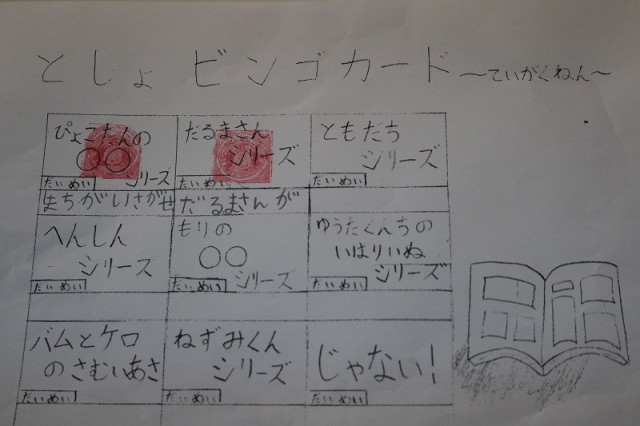 としょ ビンゴカード 〜ていがくねん〜
ぴょこたんの
○○
シリーズ
だいめい
まちがいさがせ
だるまさん
シリーズ
だいめい
だるまさんが
ともだち
シリーズ
だいめい
へんしん
シリーズ
だいめい
もりの
○○
シリーズ
だいめい
ゆうたくんちの
いばりいぬ
シリーズ
だいめい
バムとケロ
のさむいあさ
だいめい
ねずみくん
シリーズ
だいめい
じゃない!
だいめい